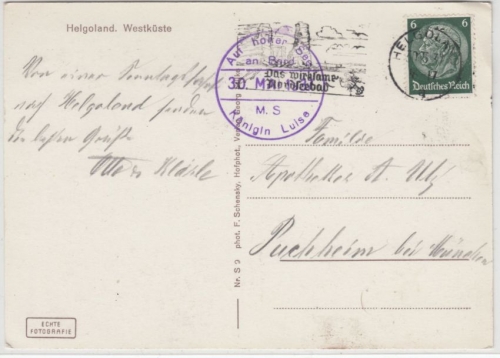 Helgoland. Westküste
Von einer Sonntagsfahrt
nach Helgoland senden
die besten Grüße
Otto u.
ECHTE
FOTOGRAFIE
Nr. S 9 phot. F. Schensky, Hofphot.,
Auf hoher See
an Bord
30. MAI
M. S
Königin Luise
Das wirksame
Nordseebad
HELGOLAND
6 6
Deutsches Reich
Familie
Apotheker A. Utz
Puchheim bei München